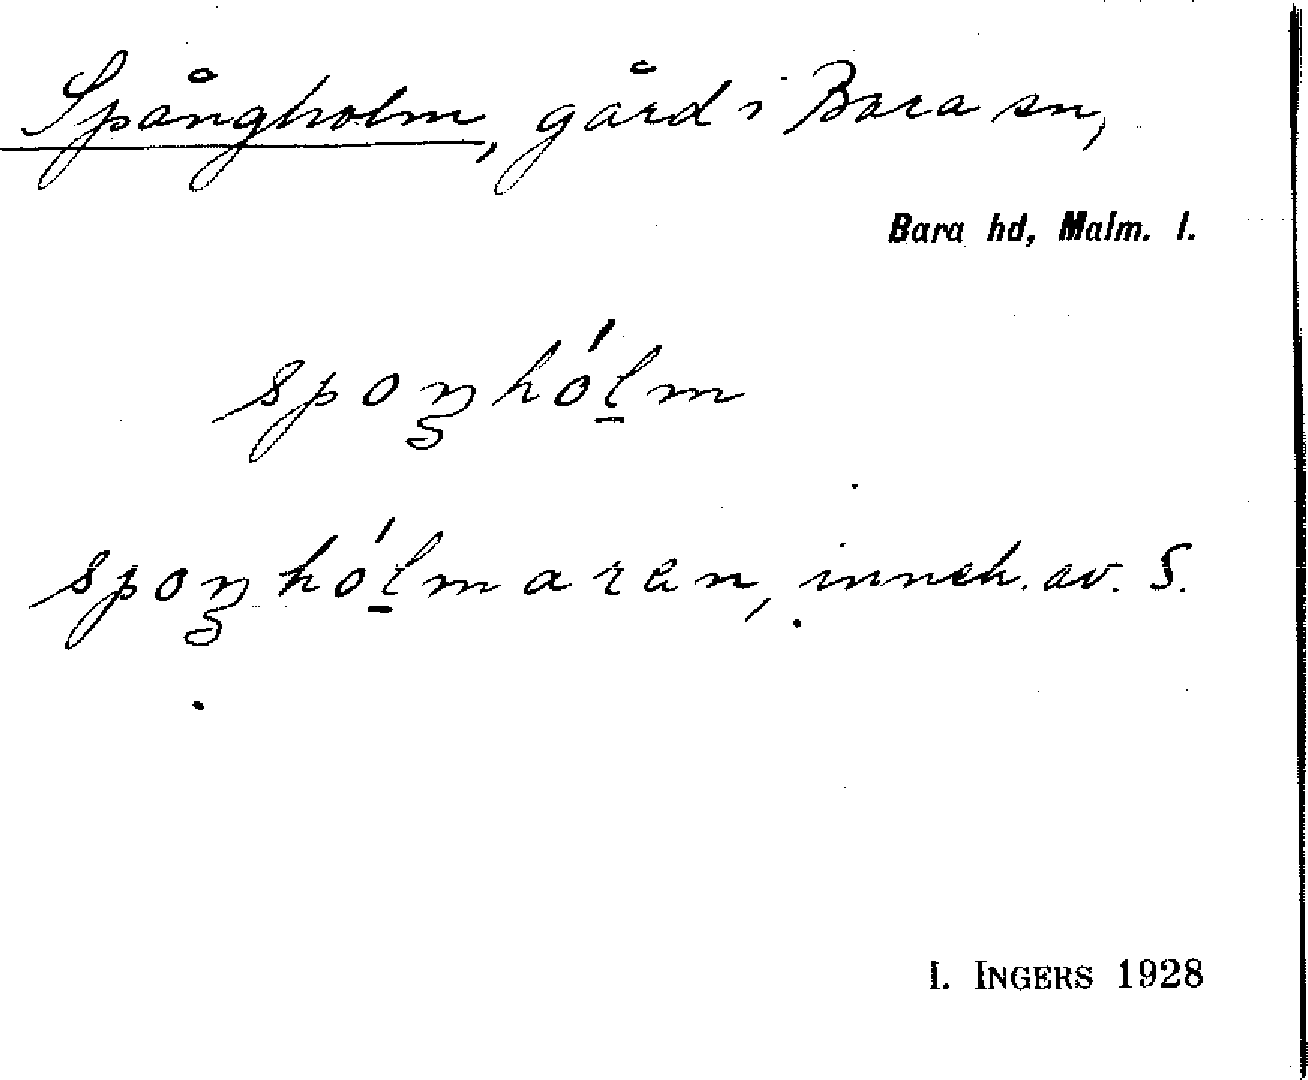 Spångholm, gård i Bara sn,
Bara hd, Malm. l.
spoŋhól̲m
spoŋhól̲maran, inneh. av. S.
I. INGERS 1928